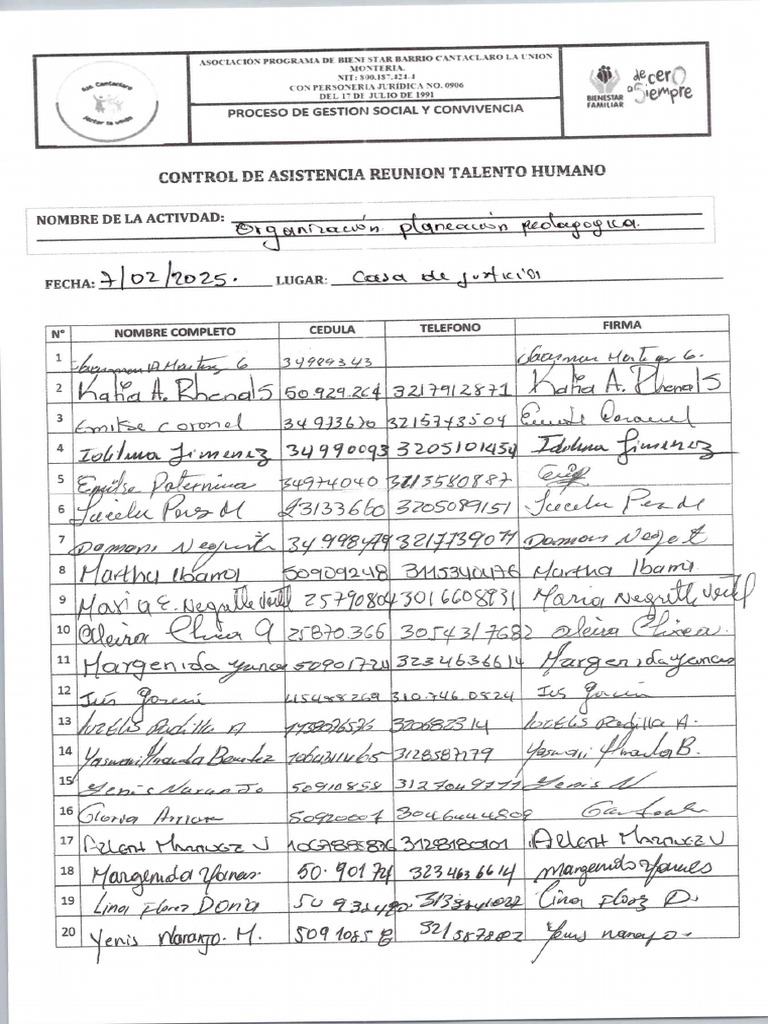 ASOCIACIÓN PROGRAMA DE BIENESTAR BARRIO CANTACLARO LA UNION
MONTERIA.
NIT: 800.187.424-4
CON PERSONERIA JURIDICA NO. 0906
DEL 17 DE JULIO DE 1991
PROCESO DE GESTION SOCIAL Y CONVIVENCIA
BIENESTAR
FAMILIAR
de cero
a Siempre
CONTROL DE ASISTENCIA REUNION TALENTO HUMANO
NOMBRE DE LA ACTIVDAD:
Organización planeación pedagogica.
FECHA: 7/02/2025. LUGAR: Casa de justicia
N° NOMBRE COMPLETO CEDULA TELEFONO FIRMA
1 Martinez G 34989343 Martinez G.
2 Katia A. Rhenals 50.929.264 3217912871 Katia A. Rhenals
3 Emilse coronel 34973670 3215743504 Coronel
4 Idilma Jimenez 34990093 3205101454 Idilma Jimenez
5 Emilse Paternina 34974040 3113580887
6 Perez M 23133660 3205089151 Perez M
7 Damaris Negrete 34.998479 3217739071 Damaris Negret
8 Martha Ibarra 50909248 3115340476 Martha Ibarra
9 Maria E. Negrette 25790804 3016608931 Maria Negrette
10 Aleira Chica 25870.366 3054317682 Aleira Chica.
11 Margenida Yanes 50901724 3234636614 Margenida Yanes
12 45488269 310.746.0824
13 Padilla A 320682314 Padilla A.
14 Miranda 1064311465 3128587179 Miranda B.
15 Yenis Naranjo 50910858 3127049771 Yenis N
16 Gloria 3046444809
17 Arlent Marquez V 3128180101 Arlent Marquez V
18 Margenida Yanes. 50.90174 3234636614 Margenida Yanes
19 Lina Florez Doria Lina Florez D.
20 Yenis Naranjo. M. 50910858 321587802 Yenis naranjo